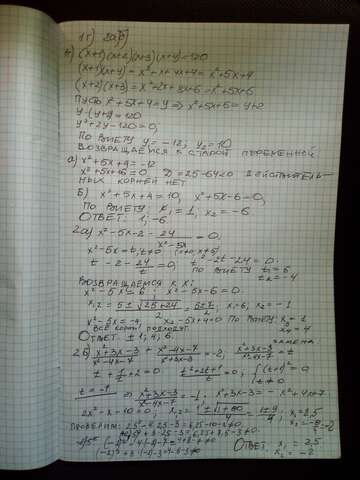 1г) 2а,б)
(x+1)(x+2)(x+3)(x+4)=120
(x+1)(x+4) = x²+x+4x+4 = x²+5x+4
(x+2)(x+3) = x²+2x+3x+6 = x²+5x+6
Пусть x²+5x+4=y ⇒ x²+5x+6=y+2
y·(y+2)=120
y²+2y-120=0;
По Виету y₁=-12; y₂=10
Возвращаемся к старой переменной
а) x²+5x+4=-12
x²+5x+16=0 D=25-64<0 действитель-
ных корней нет
Б) x²+5x+4=10, x²+5x-6=0,
По Виету x₁=1, x₂=-6
Ответ. 1; -6
2а) x²-5x-2-24/(x²-5x)=0,
x²-5x=t, t≠0
t-2-24/t=0; t²-2t-24=0.
по Виету t=6
t=-4
Возвращаемся к x:
x²-5x=6; x²-5x-6=0.
x₁,₂=(5±√(25+24))/2=(5±7)/2; x=6, x₂=-1
x²-5x=-4 x²-5x+4=0 по Виету x₃=1
x₄=4
Все корни подходят.
Ответ. ±1; 4; 6.
замена
2б) (x²+3x-3)/(x²-4x-7)+(x²-4x-7)/(x²+3x-3)=-2; (x²+3x-3)/(x²-4x-7)=t
t+1/t+2=0 (t²+2t+1)/t=0; {(t+1)²=0
t≠0
t=-1 ⇒ (x²+3x-3)/(x²-4x-7)=-1; x²+3x-3=-x²+4x+7
2x²-x-10=0; x₁,₂=(1±√(1+80))/4=(1±9)/4; x₁=2,5
x₂=-2
Проверим:
Ответ: x₁=2,5
x₂=-2